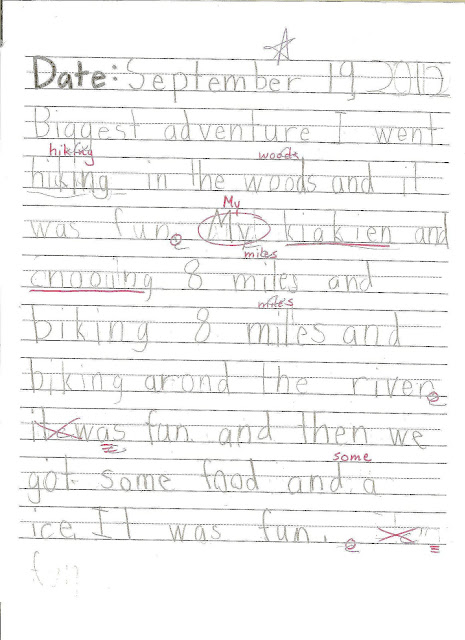 Date: September 19 2012
Biggest adventure I went
hiking
woods
hiking in the woods and it
My
was fun. My kiakien and
miles
cnooing 8 miles and
miles
biking 8 miles and
biking arond the river.
it was fun and then we
some
got some food and a
ice. It was fun.